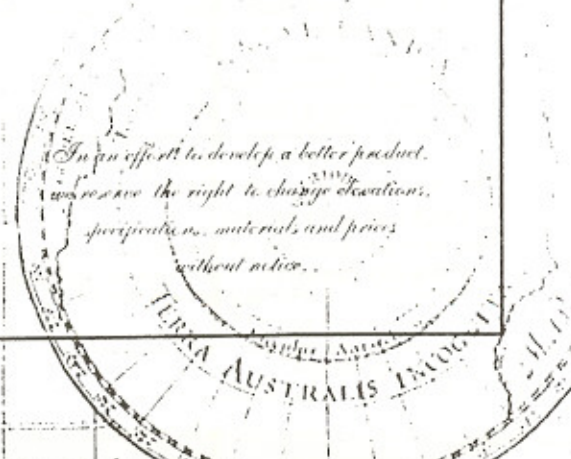 In an effort to develop a better product,
we reserve the right to change elevations,
specifications, materials and prices
without notice.
TERRA AUSTRALIS INCOGNITA